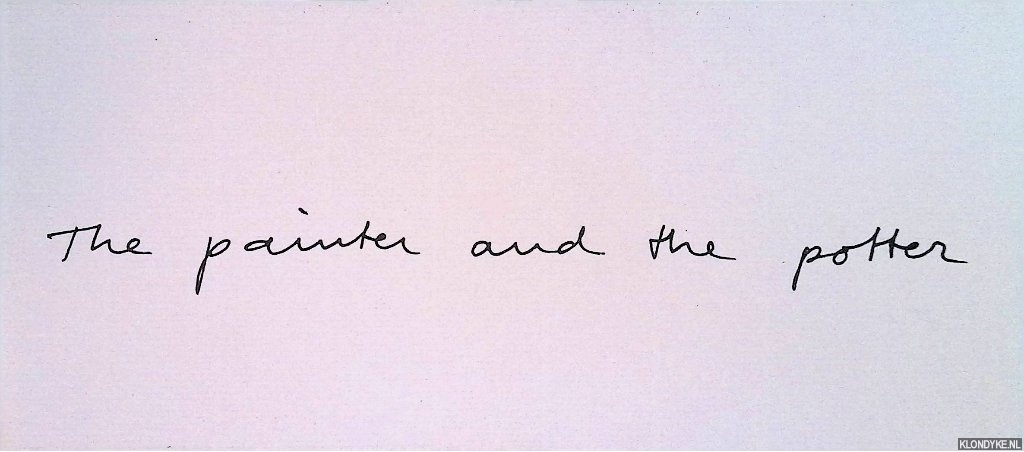 The painter and the potter
KLONDYKE.NL